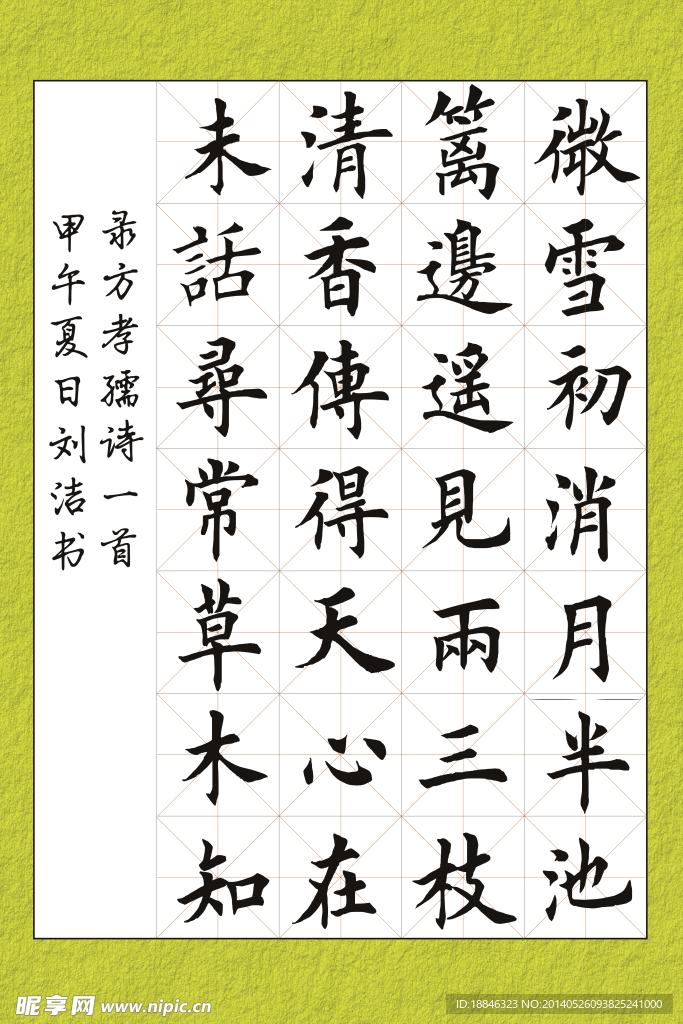 微雪初消月半池
籬邊遥見兩三枝
清香傳得天心在
未話尋常草木知
录方孝孺诗一首
甲午夏日刘洁书
昵享网 www.nipic.cn
ID:18846323 NO:20140526093825241000